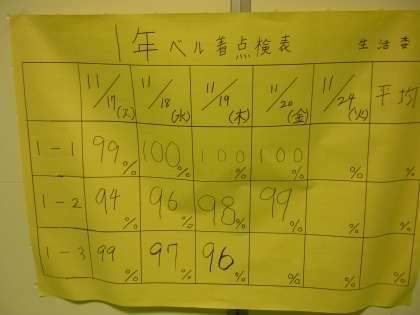 1年ベル着点検表 生活委
11/17(火) 11/18(水) 11/19(木) 11/20(金) 11/24(火) 平均
1-1 99% 100% 100% 100% % %
1-2 94% 96% 98% 99% % %
1-3 99% 97% 96% % % %